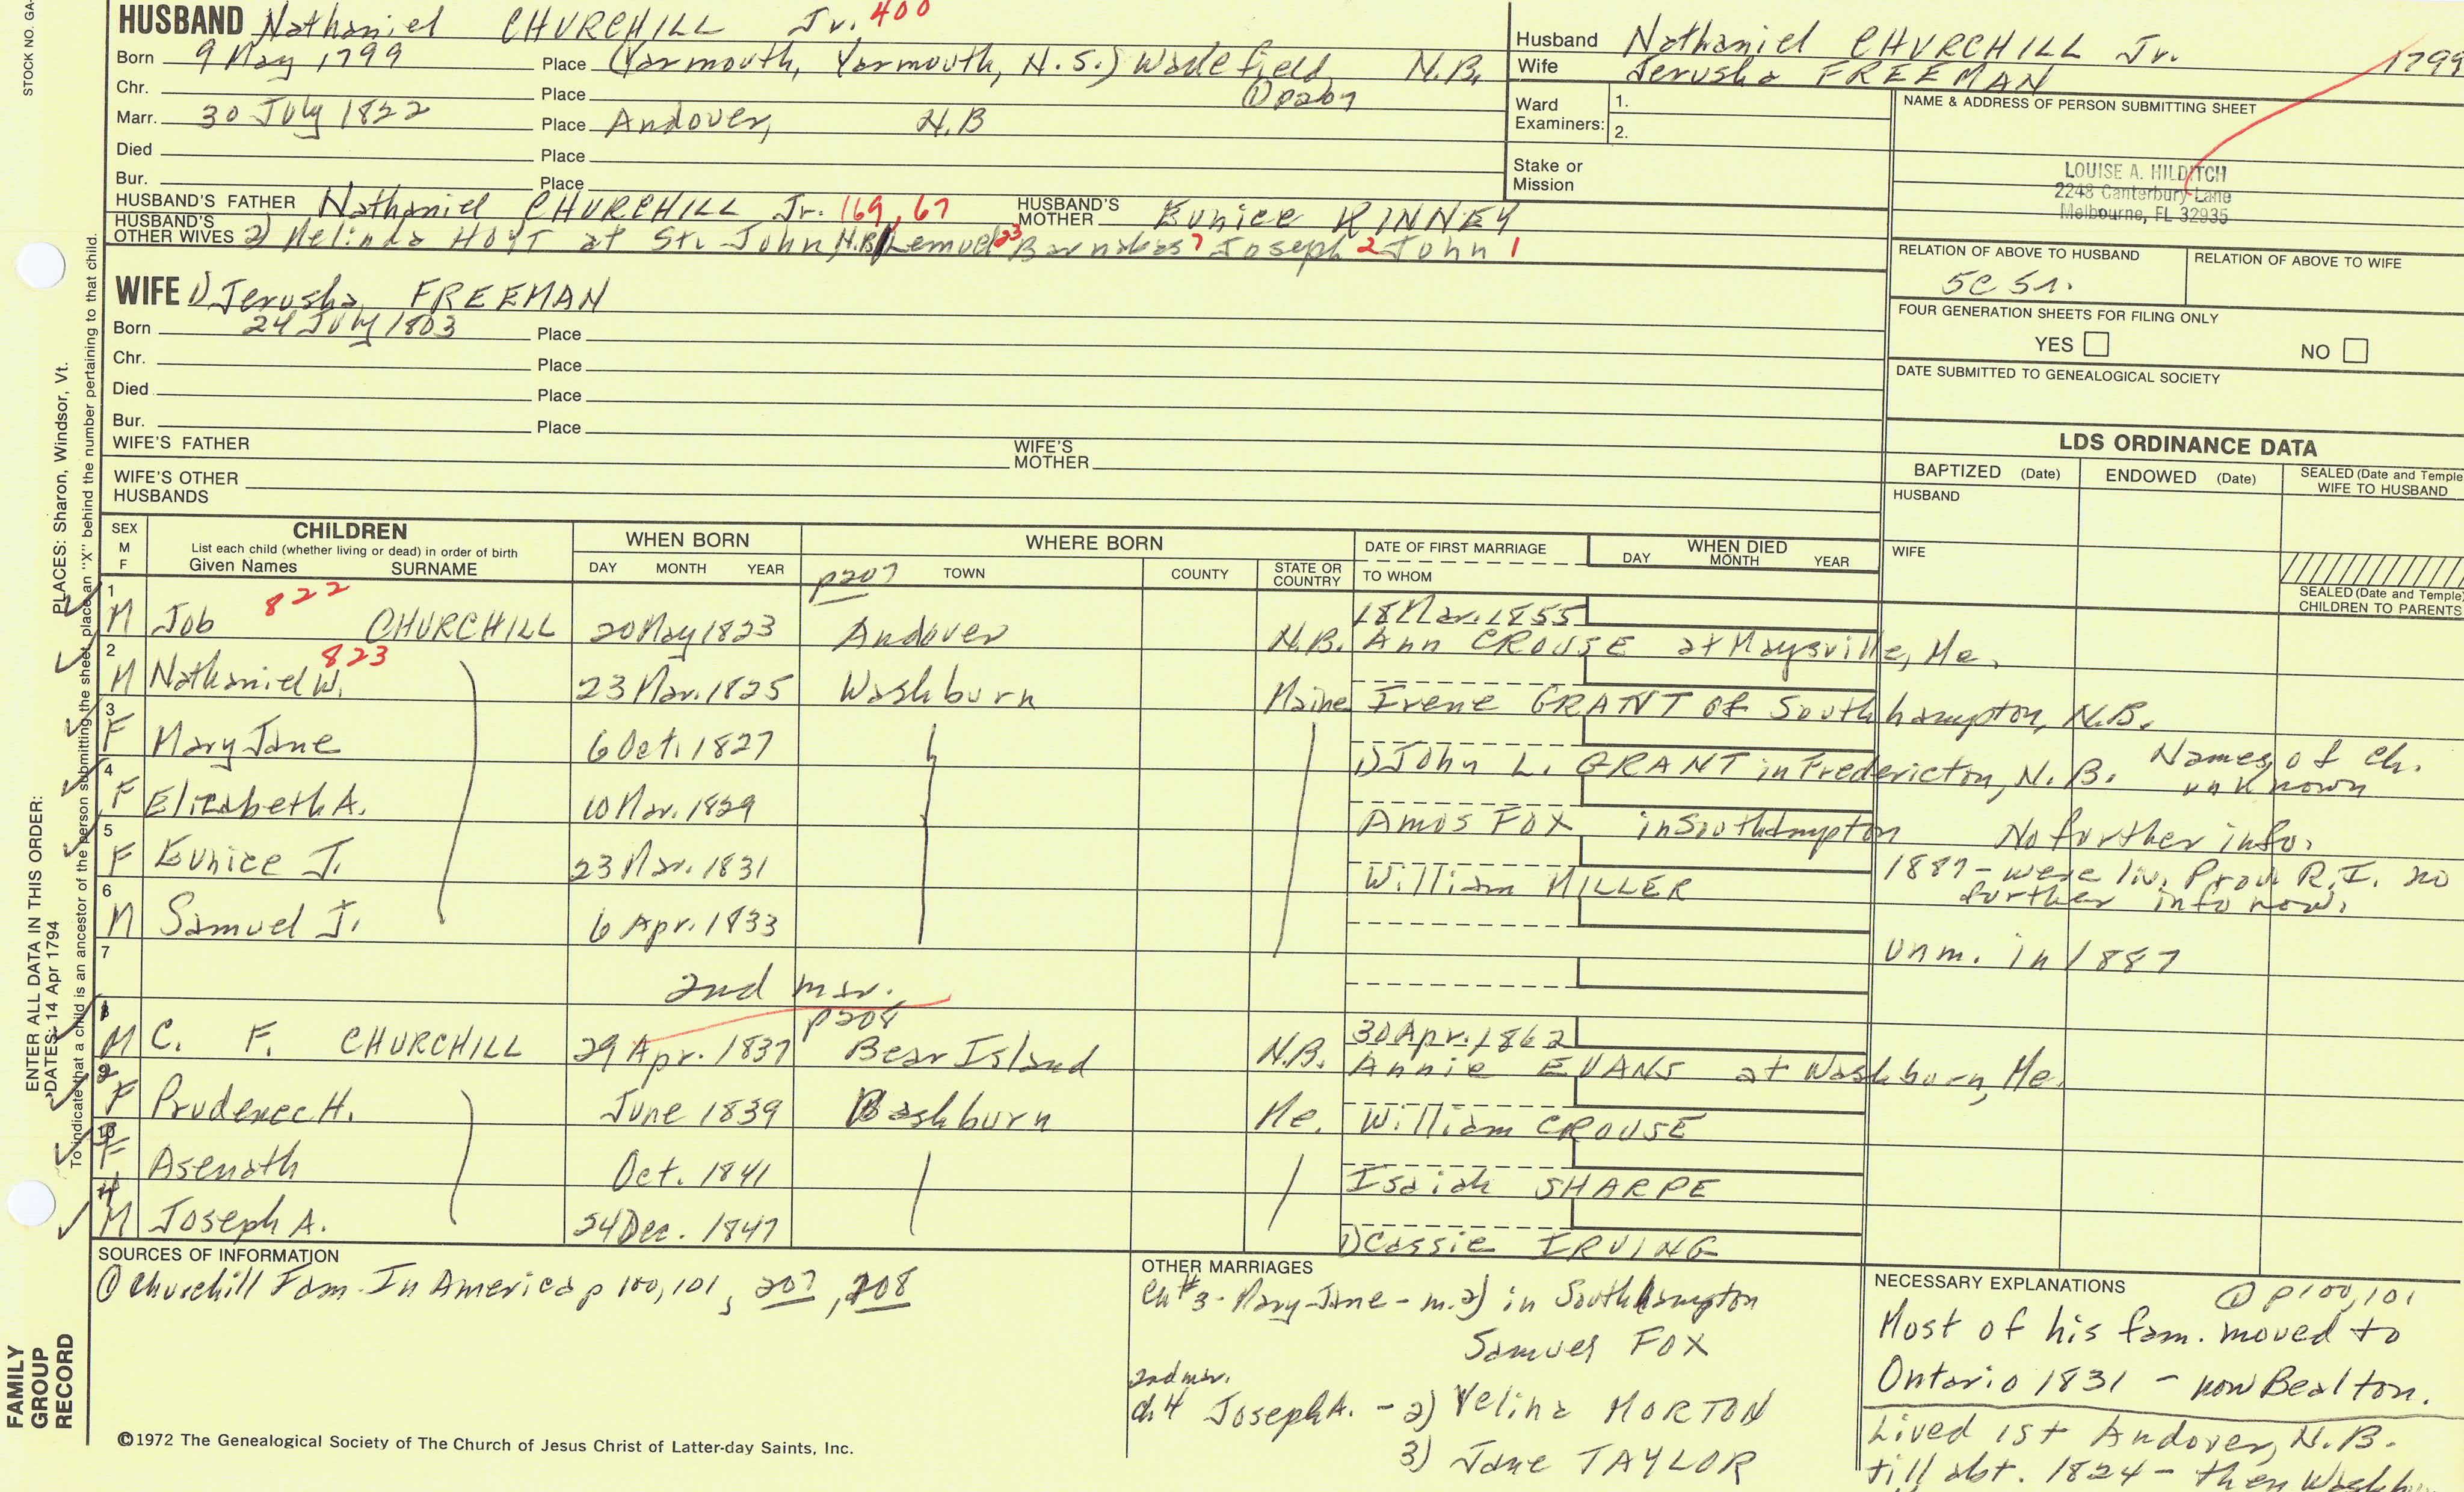 STOCK NO. GA-
HUSBAND Nathaniel CHURCHILL Jr. 400
Born 9 May 1799 Place (Yarmouth, Yarmouth, N.S.) Wakefield N.B.
Chr. Place ① p207
Marr. 30 July 1822 Place Andover, N.B
Died Place
Bur. Place
HUSBAND'S FATHER Nathaniel CHURCHILL Jr. 169, 67 HUSBAND'S MOTHER Eunice KINNEY
HUSBAND'S OTHER WIVES 2) Melinda HOYT at St. John, N.B. Lemuel 23 Barnabas 7 Joseph 2 John 1
Husband Nathaniel CHURCHILL Jr. 1799
Wife Jerusha FREEMAN
Ward Examiners: 1.
2.
Stake or Mission
NAME & ADDRESS OF PERSON SUBMITTING SHEET
LOUISE A. HILDITCH
2248 Canterbury Lane
Melbourne, FL 32935
RELATION OF ABOVE TO HUSBAND RELATION OF ABOVE TO WIFE
5C 5r.
FOUR GENERATION SHEETS FOR FILING ONLY
YES NO
DATE SUBMITTED TO GENEALOGICAL SOCIETY
WIFE 1) Jerusha FREEMAN
Born 24 July 1803 Place
Chr. Place
Died Place
Bur. Place
WIFE'S FATHER WIFE'S MOTHER
WIFE'S OTHER HUSBANDS
LDS ORDINANCE DATA
BAPTIZED (Date) ENDOWED (Date) SEALED (Date and Temple
WIFE TO HUSBAND
HUSBAND
WIFE
SEALED (Date and Temple)
CHILDREN TO PARENTS
SEX M F CHILDREN WHEN BORN WHERE BORN DATE OF FIRST MARRIAGE WHEN DIED
List each child (whether living or dead) in order of birth
Given Names SURNAME DAY MONTH YEAR p207 TOWN COUNTY STATE OR COUNTRY TO WHOM DAY MONTH YEAR
1 M Job 822 CHURCHILL 20 May 1823 Andover N.B. 18 Mar. 1855 Ann CROUSE at Maysville, Me.
2 M Nathaniel W. 823 23 Mar. 1825 Washburn Maine Irene GRANT of Southhampton, N.B.
3 F Mary Jane 6 Oct. 1827 1) John L. GRANT in Fredericton, N.B. Names of ch. unknown
4 F Elizabeth A. 10 Mar. 1829 Amos FOX in Southampton No further info.
5 F Eunice J. 23 Mar. 1831 William MILLER 1887 - were liv. Prov R.I. no further info now.
6 M Samuel J. 6 Apr. 1833 unm. in 1887
7
2nd mar.
p208
1 M C. F. CHURCHILL 29 Apr. 1837 Bear Island N.B. 30 Apr. 1862 Annie EVANS at Washburn, Me.
2 F Prudence H. June 1839 Washburn Me. William CROUSE
F Asenath Oct. 1841 Isaiah SHARPE
4 M Joseph A. 24 Dec. 1847 1) Cassie IRVING
SOURCES OF INFORMATION
① Churchill Fam. In America p 100, 101, 207, 208
OTHER MARRIAGES
Ch #3 - Mary Jane - m. 2) in Southhampton
Samuel FOX
2nd mar.
ch. 4 Joseph A. - 2) Velina MORTON
3) Jane TAYLOR
NECESSARY EXPLANATIONS
① p 100, 101
Most of his fam. moved to
Ontario 1831 - now Bealton.
Lived 1st Andover, N.B.
till abt. 1824 - then
©1972 The Genealogical Society of The Church of Jesus Christ of Latter-day Saints, Inc.
FAMILY
GROUP
RECORD
ENTER ALL DATA IN THIS ORDER:
DATES: 14 Apr 1794 PLACES: Sharon, Windsor, Vt.
To indicate that a child is an ancestor of the person submitting the sheet, place an "X" behind the number pertaining to that child.